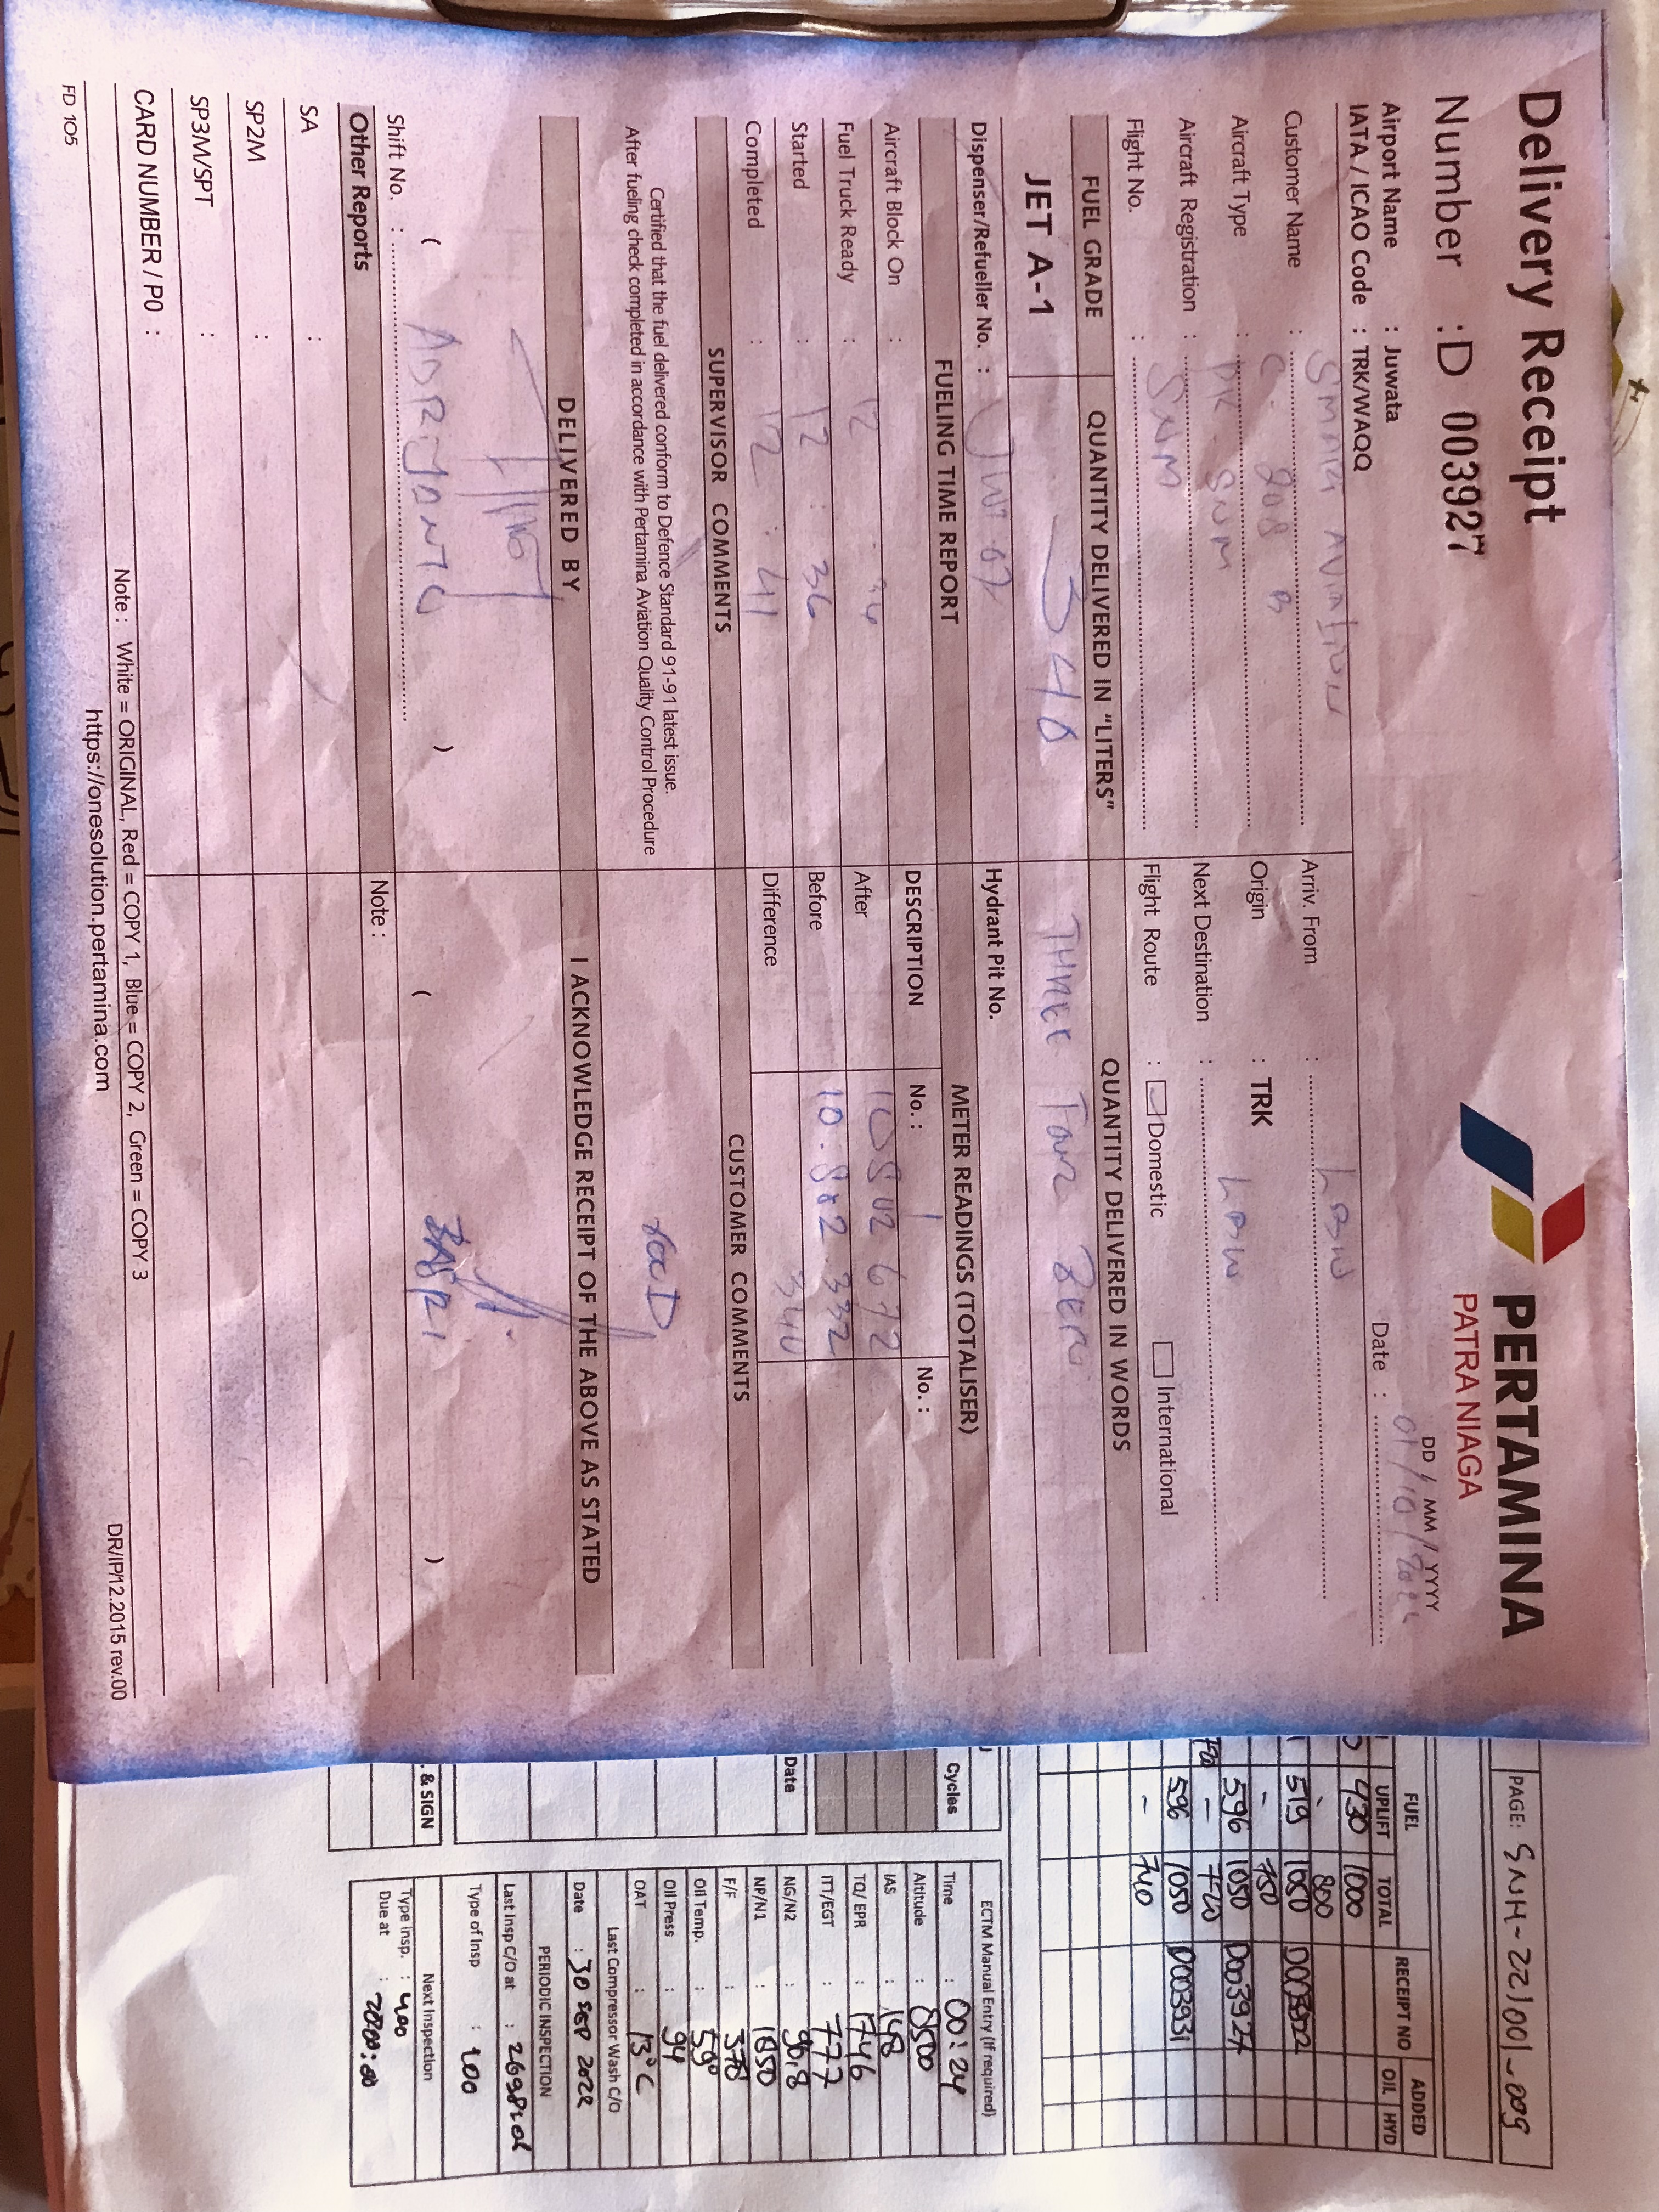 Delivery Receipt
PERTAMINA
PATRA NIAGA
Number : D 003927
DD / MM / YYYY
Airport Name : Juwata
Date : 01/10/2022
IATA / ICAO Code : TRK/WAQQ
Customer Name : SMART AVIATION
Arriv. From :
Aircraft Type : C 208 B
Origin : TRK
Aircraft Registration : PK-SNM
Next Destination :
Flight No. : SNM
Flight Route : Domestic International
FUEL GRADE QUANTITY DELIVERED IN "LITERS" QUANTITY DELIVERED IN WORDS
JET A-1 340 THREE Four Zero
Dispenser/Refueller No. : Hydrant Pit No.
FUELING TIME REPORT METER READINGS (TOTALISER)
Aircraft Block On :
DESCRIPTION No. : 1 No. :
Fuel Truck Ready : 12 : 34
After 10802672
Started : 12 : 36
Before 10.802.332
Completed : 12 : 41
Difference 340
SUPERVISOR COMMENTS CUSTOMER COMMENTS
Certified that the fuel delivered conform to Defence Standard 91-91 latest issue.
After fueling check completed in accordance with Pertamina Aviation Quality Control Procedure
GOOD
DELIVERED BY I ACKNOWLEDGE RECEIPT OF THE ABOVE AS STATED
( ADRIYANTO ) ( )
Shift No. :
Other Reports Note :
SA :
SP2M :
SP3M/SPT :
CARD NUMBER / PO :
Note : White = ORIGINAL, Red = COPY 1, Blue = COPY 2, Green = COPY 3
DR/IP/12.2015 rev.00
https://onesolution.pertamina.com
FD 105
PAGE: SNM-22/001-009
FUEL RECEIPT NO ADDED
UPLIFT TOTAL OIL HYD
430 1000
- 800
519 1050 D003922
- 750
596 1050 D003927
- 720
596 1050 D003931
- 740
Cycles
Date
. & SIGN
ECTM Manual Entry (If required)
Time : 00:24
Altitude : 8500
IAS : 148
TQ/ EPR : 1746
ITT/EGT : 777
NG/N2 : 96.8
NP/N1 : 1850
F/F : 378
Oil Temp. : 59°
Oil Press : 94
OAT : 13°C
Last Compressor Wash C/O
Date : 30 SEP 2022
PERIODIC INSPECTION
Last Insp C/O at :
Type of Insp : 100
Next Inspection
Type Insp. : 400
Due at :